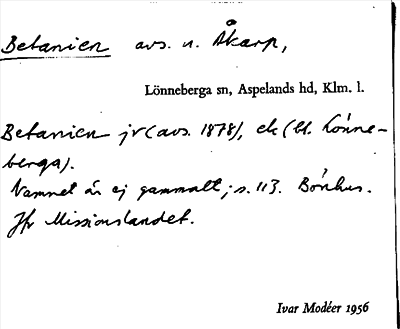 Betanien avs. u. Åkarp,
Lönneberga sn, Aspelands hd, Klm. l.
Betanien jr (avs. 1878), ek (bl. Lönne-
berga).
Namnet är ej gammalt; s. 113. Bönhus.
Jfr Missionslandet.
Ivar Modéer 1956